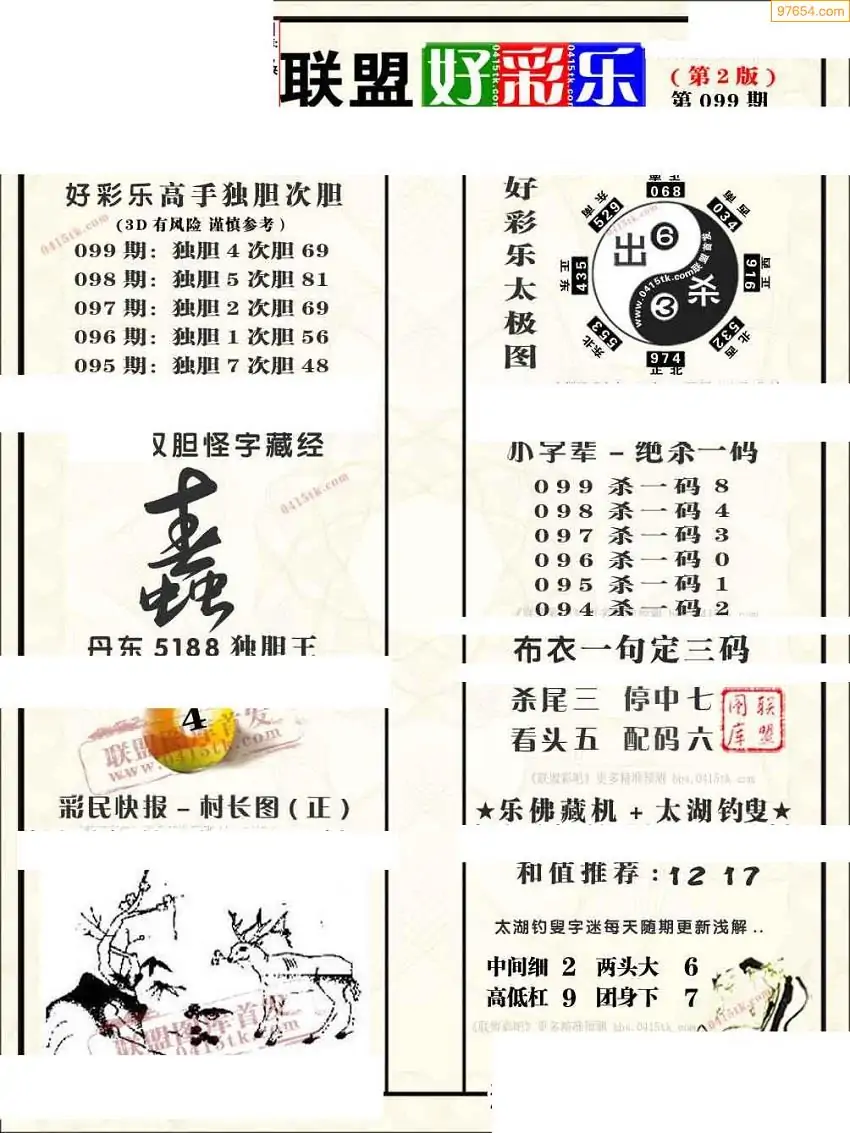 97654.com
联盟 好彩乐
(第2版)
第099期
好彩乐高手独胆次胆
(3D有风险 谨慎参考)
099期：独胆4次胆69
098期：独胆5次胆81
097期：独胆2次胆69
096期：独胆1次胆56
095期：独胆7次胆48
双胆怪字藏经
0415tk.com
丹东5188独胆王
4
联盟图库首发
www.0415tk.com
彩民快报－村长图(正)
联盟图库首发
0415tk.com
好彩乐太极图
068
东南
529
西南
034
正东
435
正西
916
东北
553
西北
532
974
正北
出
6
3
杀
www.0415tk.com联盟首发
小字辈－绝杀一码
099 杀一码 8
098 杀一码 4
097 杀一码 3
096 杀一码 0
095 杀一码 1
094 杀一码 2
布衣一句定三码
杀尾三 停中七
看头五 配码六
联盟图库
《联盟彩吧》更多精准预测 bbs.0415tk.com
★乐佛藏机+太湖钓叟★
和值推荐：12 17
太湖钓叟字迷每天随期更新浅解..
中间细 2 两头大 6
高低杠 9 团身下 7
《联盟彩吧》更多精准预测 bbs.0415tk.com
0415tk.com